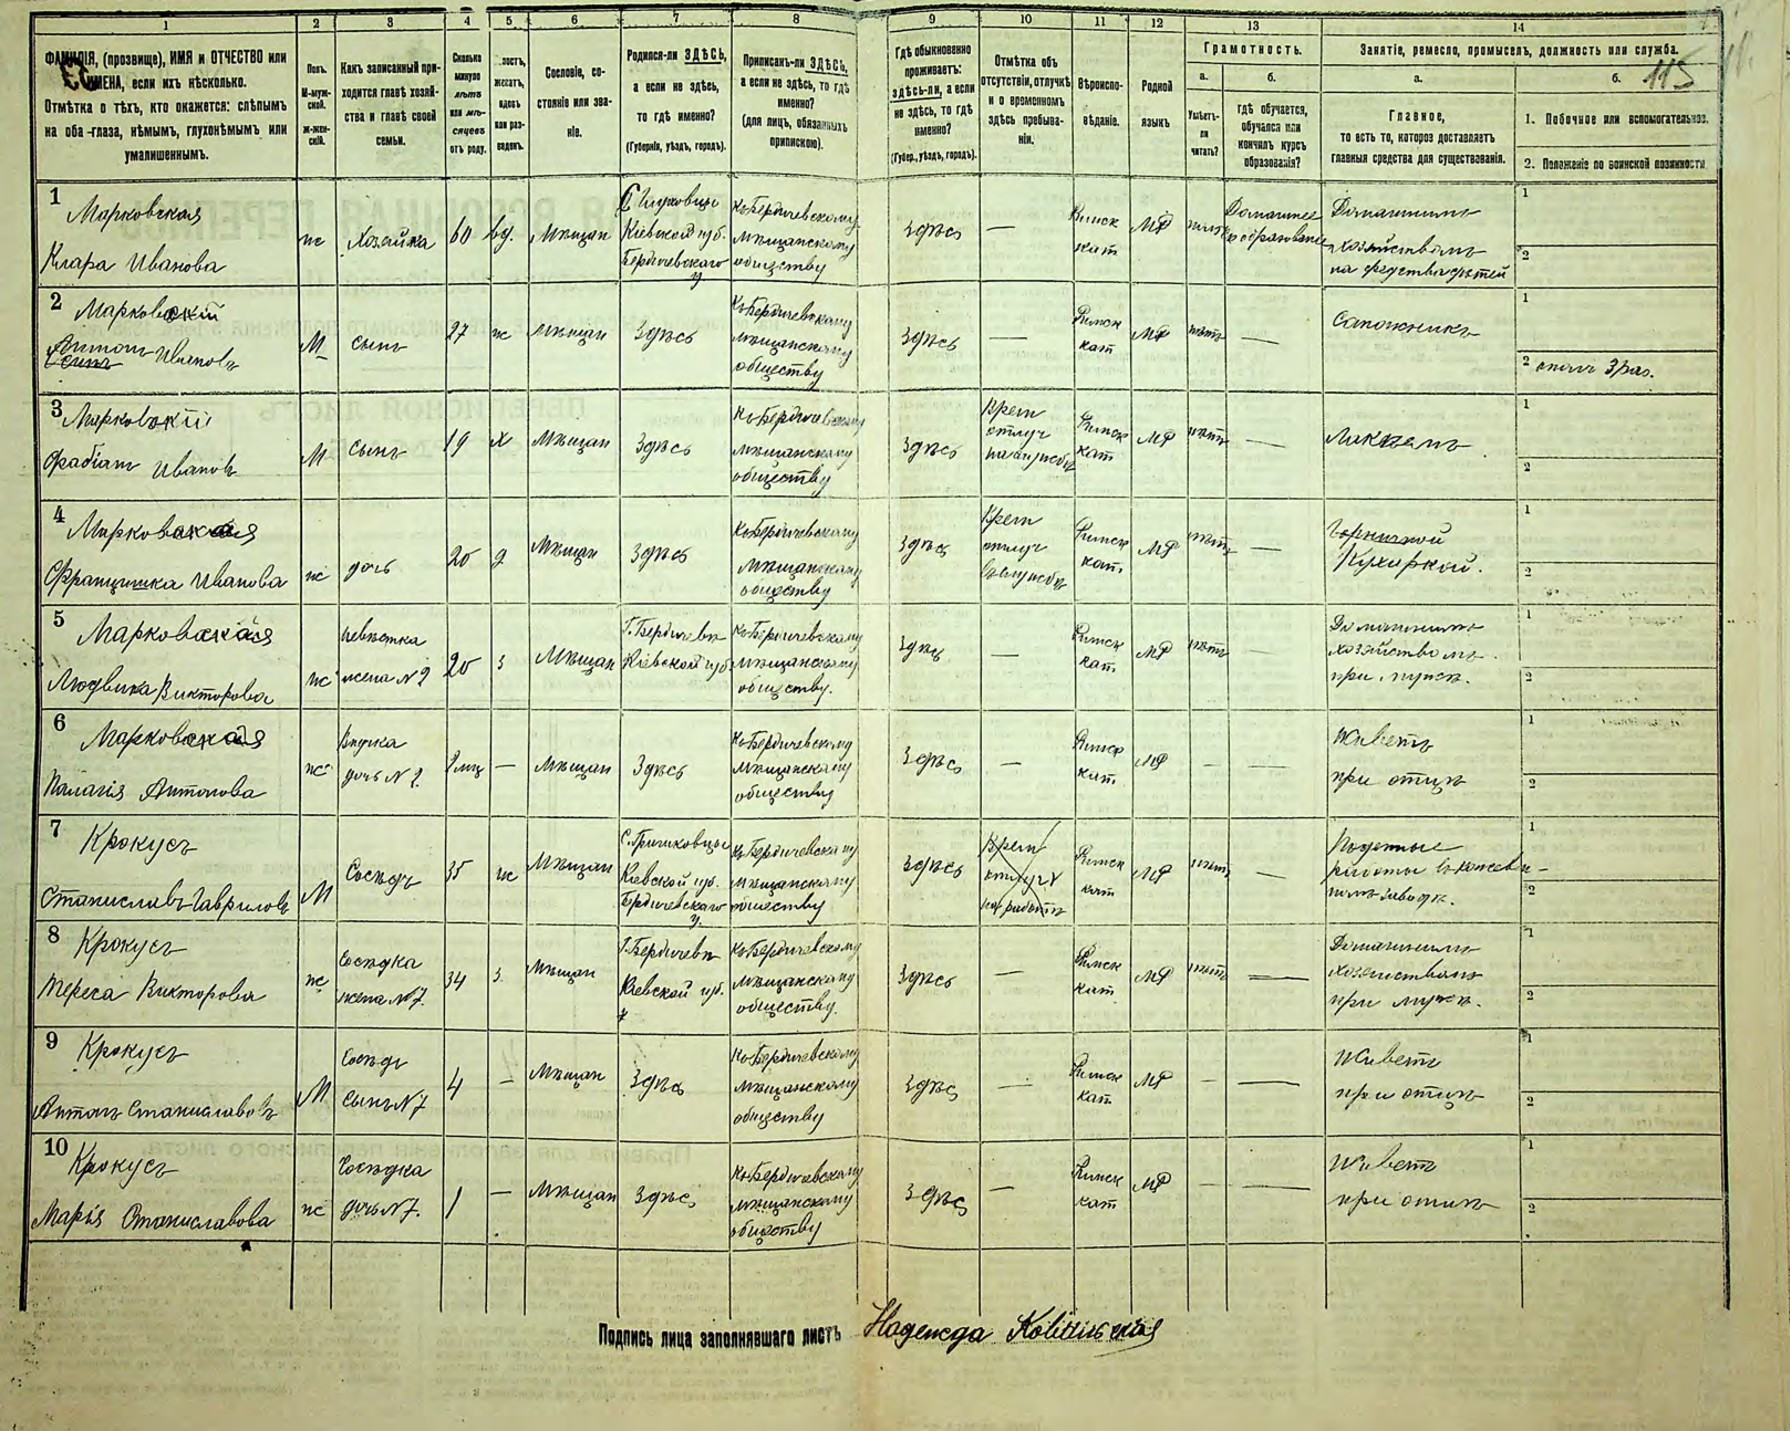 1 2 3 4 5 6 7 8 9 10 11 12 13 14
115
ФАМИЛІЯ, (прозвище), ИМЯ и ОТЧЕСТВО или
ИМЕНА, если ихъ нѣсколько.
Отмѣтка о тѣхъ, кто окажется: слѣпымъ
на оба глаза, нѣмымъ, глухонѣмымъ или
умалишеннымъ.
Полъ.
М-муж-
ской.
ж-жен-
скій.
Какъ записанный при-
ходится главѣ хозяй-
ства и главѣ своей
семьи.
Сколько
минуло
лѣтъ
или мѣ-
сяцевъ
отъ роду.
Сословіе, со-
стояніе или зва-
ніе.
Родился-ли ЗДѢСЬ,
а если не здѣсь,
то гдѣ именно?
(Губернія, уѣздъ, городъ).
Приписанъ-ли ЗДѢСЬ,
а если не здѣсь, то гдѣ
именно?
(для лицъ, обязанныхъ
припискою).
Гдѣ обыкновенно
проживаетъ:
здѣсь-ли, а если
не здѣсь, то гдѣ
именно?
(Губер., уѣздъ, городъ).
Отмѣтка объ
отсутствіи, отлучкѣ
и о временномъ
здѣсь пребыва-
ніи.
Вѣроиспо-
вѣданіе.
Родной
языкъ
Грамотность.
а.
Умѣетъ-
ли
читать?
б.
гдѣ обучается,
обучался или
кончилъ курсъ
образованія?
Занятіе, ремесло, промыселъ, должность или служба.
а.
Главное,
то есть то, которое доставляетъ
главныя средства для существованія.
б.
1. Побочное или вспомогательное.
2. Положеніе по воинской повинности
1
Марковская
Клара Иванова
ж
Хозяйка
60
вд.
Мѣщан
Кіевской губ.
Бердичевскаго
у
Къ Бердичевскому
мѣщанскому
обществу
Здѣсь
—
Римск
кат
Домашнее
образованіе
Домашнимъ
хозяйствомъ
на средства дѣтей
1
2
2
Марковскій
Антонъ Ивановъ
М
сынъ
27
ж
Мѣщан
Здѣсь
Къ Бердичевскому
мѣщанскому
обществу
Здѣсь
—
Римск
кат
нѣтъ
—
Сапожникъ
1
2
3
Марковскій
Фабіанъ Ивановъ
М
сынъ
19
х
Мѣщан
Здѣсь
Къ Бердичевскому
мѣщанскому
обществу
Здѣсь
Врем
отлуч
Римск
кат
нѣтъ
—
Лакеемъ
1
2
4
Марковская
Францишка Иванова
ж
дочь
20
д
Мѣщан
Здѣсь
Къ Бердичевскому
мѣщанскому
обществу
Здѣсь
Врем
отлуч
Римск
кат.
нѣтъ
—
Кухаркой.
1
2
5
Марковская
Людвика Викторова
ж
невѣстка
жена N 2
20
з
Мѣщан
Г. Бердичевъ
Кіевской губ
Къ Бердичевскому
мѣщанскому
обществу.
Здѣсь
—
Римск
кат
нѣтъ
Домашнимъ
хозяйствомъ
при мужѣ.
1
2
6
Марковская
Пелагія Антонова
ж
Внучка
дочь N 2.
2 мц
—
Мѣщан
Здѣсь
Къ Бердичевскому
мѣщанскому
обществу
Здѣсь
—
Римск
кат
— —
Живетъ
при отцѣ
1
2
7
Крокусъ
Станиславъ Гавриловъ
М
Сосѣдъ
35
ж
Мѣщан
С. Гришковцы
Кіевской губ.
Бердичевскаго
у
Къ Бердичевскому
мѣщанскому
обществу
Здѣсь
Врем
отлуч
на работѣ
Римск
кат
нѣтъ
—
Поденные
работы въ кожевен-
номъ заводѣ.
1
2
8
Крокусъ
Тереса Викторова
ж
Сосѣдка
жена N 7.
34
з
Мѣщан
Г. Бердичевъ
Кіевской губ.
Къ Бердичевскому
мѣщанскому
обществу.
Здѣсь
—
Римск
кат
нѣтъ
—
Домашнимъ
хозяйствомъ
при мужѣ.
1
2
9
Крокусъ
Антонъ Станиславовъ
М
Сосѣдъ
сынъ N 7
4
—
Мѣщан
Здѣсь
Къ Бердичевскому
мѣщанскому
обществу
Здѣсь
—
Римск
кат
— —
Живетъ
при отцѣ
1
2
10
Крокусъ
Марія Станиславова
ж
Сосѣдка
дочь N 7.
1
—
Мѣщан
Здѣсь
Къ Бердичевскому
мѣщанскому
обществу
Здѣсь
—
Римск
кат
— —
Живетъ
при отцѣ
1
2
Подпись лица заполнявшаго листъ Надежда